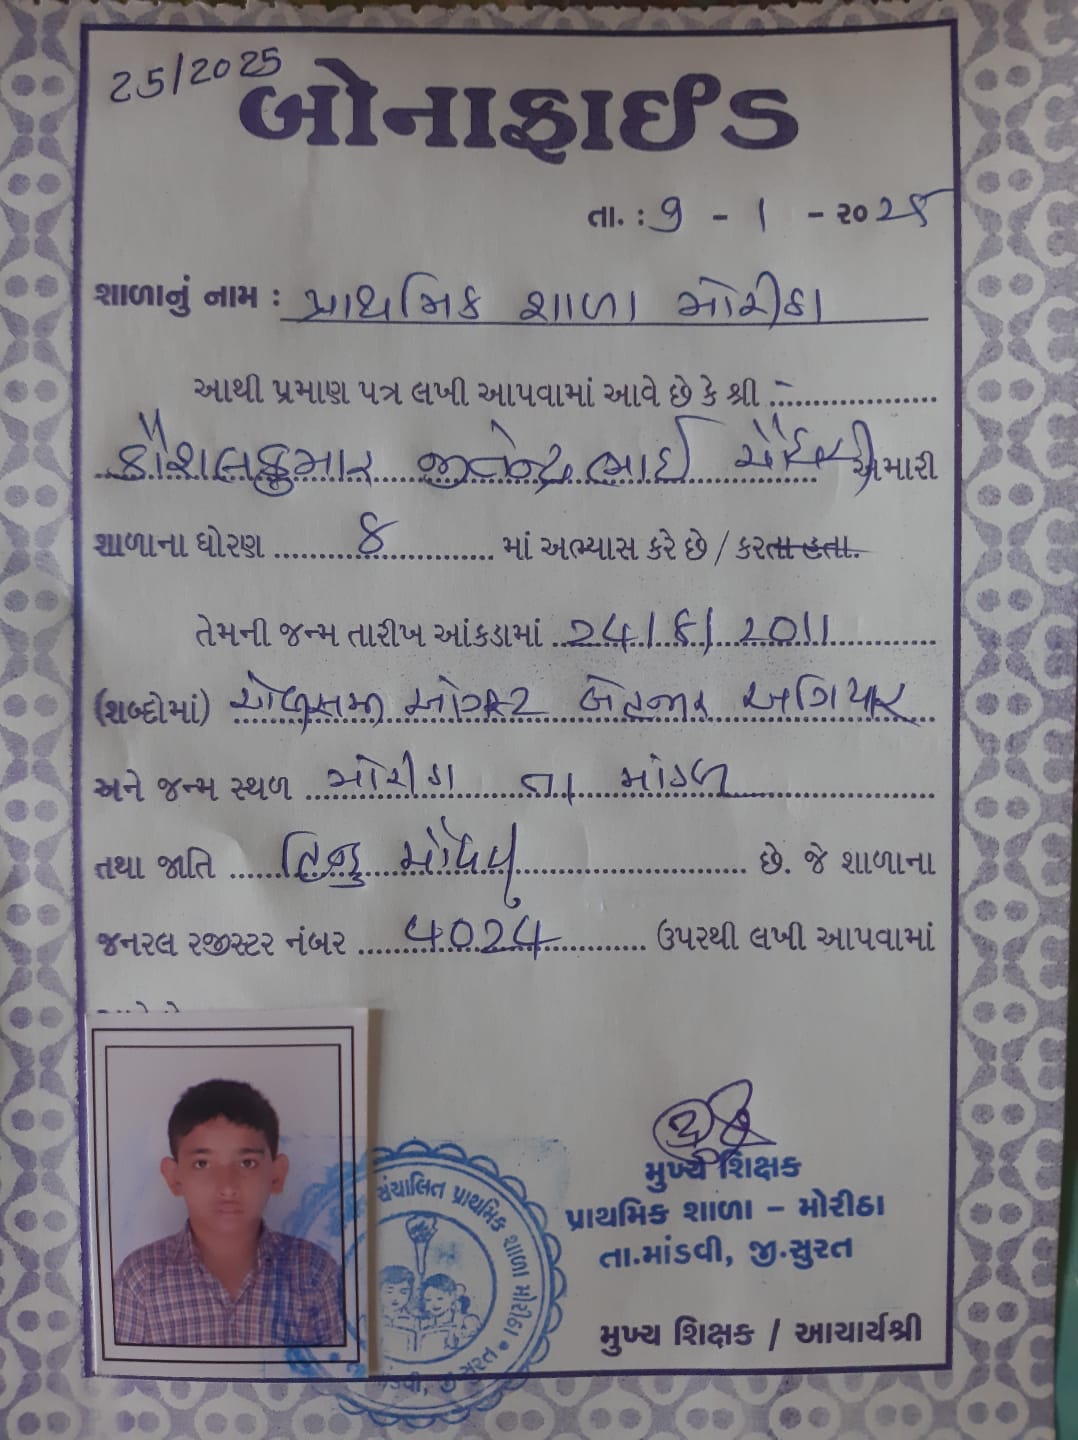 25/2025
બોનાફાઈડ
તા. : 9 - 1 - ૨૦ ૨૫
શાળાનું નામ : પ્રાથમિક શાળા મોરીઠા
આથી પ્રમાણ પત્ર લખી આપવામાં આવે છે કે શ્રી :-
કૌશલકુમાર જીતેન્દ્રભાઈ ચૌધરી અમારી
શાળાના ધોરણ ૪ માં અભ્યાસ કરે છે / કરતા હતા.
તેમની જન્મ તારીખ આંકડામાં 24/8/2011
(શબ્દોમાં) ઓગસ્ટ બેહજાર અગિયાર
અને જન્મ સ્થળ મોરીઠા તા
તથા જાતિ હિન્દુ ચૌધરી છે. જે શાળાના
જનરલ રજીસ્ટર નંબર 4024 ઉપરથી લખી આપવામાં
મુખ્ય શિક્ષક
પ્રાથમિક શાળા – મોરીઠા
તા.માંડવી, જી.સુરત
સંચાલિત પ્રાથમિક શાળા મોરીઠા
માંડવી, જી.સુરત
મુખ્ય શિક્ષક / આચાર્યશ્રી